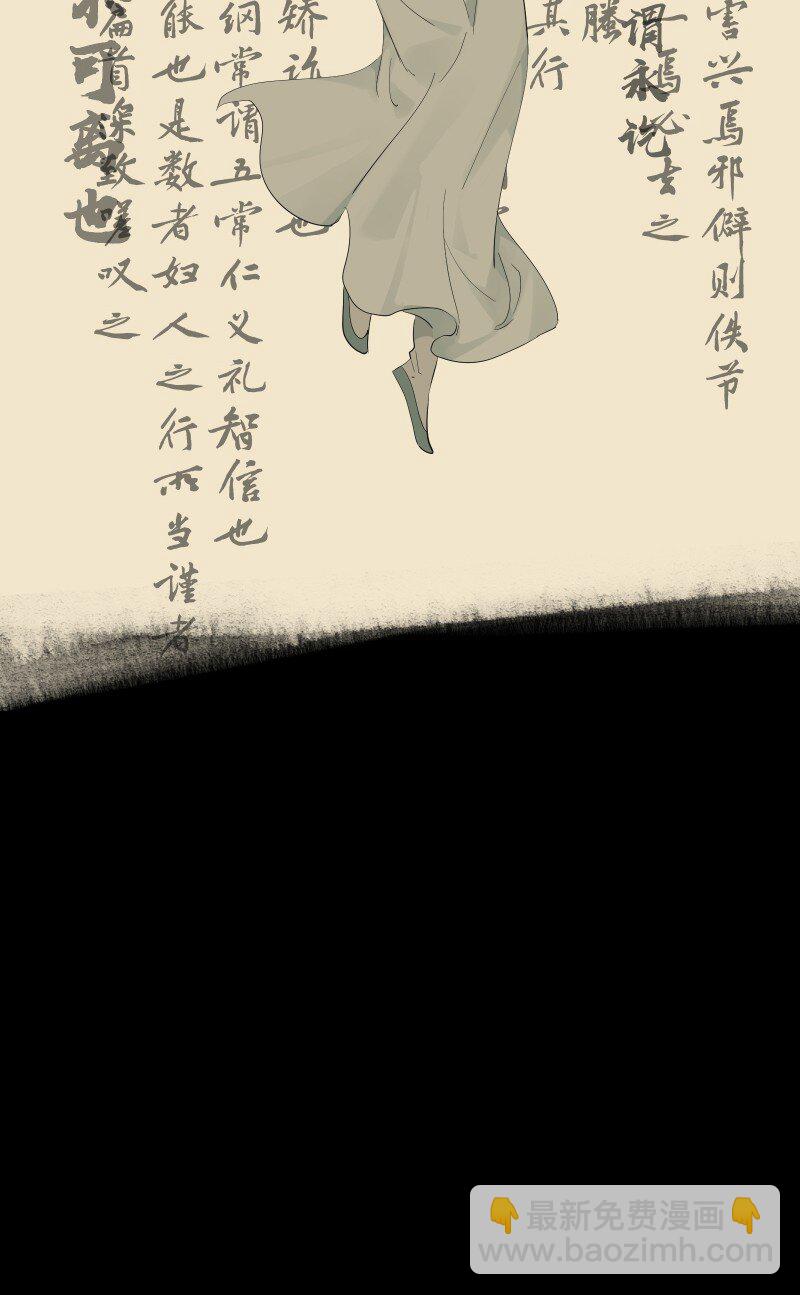 害兴焉邪僻则佚节
焉必去之
谓永讫
螣
其行
矫诈
也
纲常谓五常仁义礼智信也
能也是数者妇人之行所当谨者
篇首深致嗟叹之
可离也
👇最新免费漫画👇
www.baozimh.com